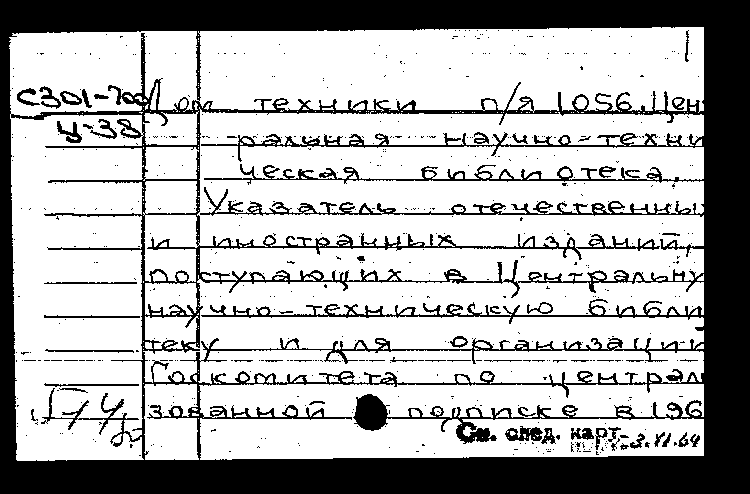 С301-700 Дом техники п/я 1056. Цен
Ц-38 ральная научно-техни
ческая библиотека.
Указатель отечественны
и иностранных изданий,
поступающих в Центральну
научно-техническую библи
теку и для организаций
Госкомитета по централ
зованной подписке в 196
См. след. карт.